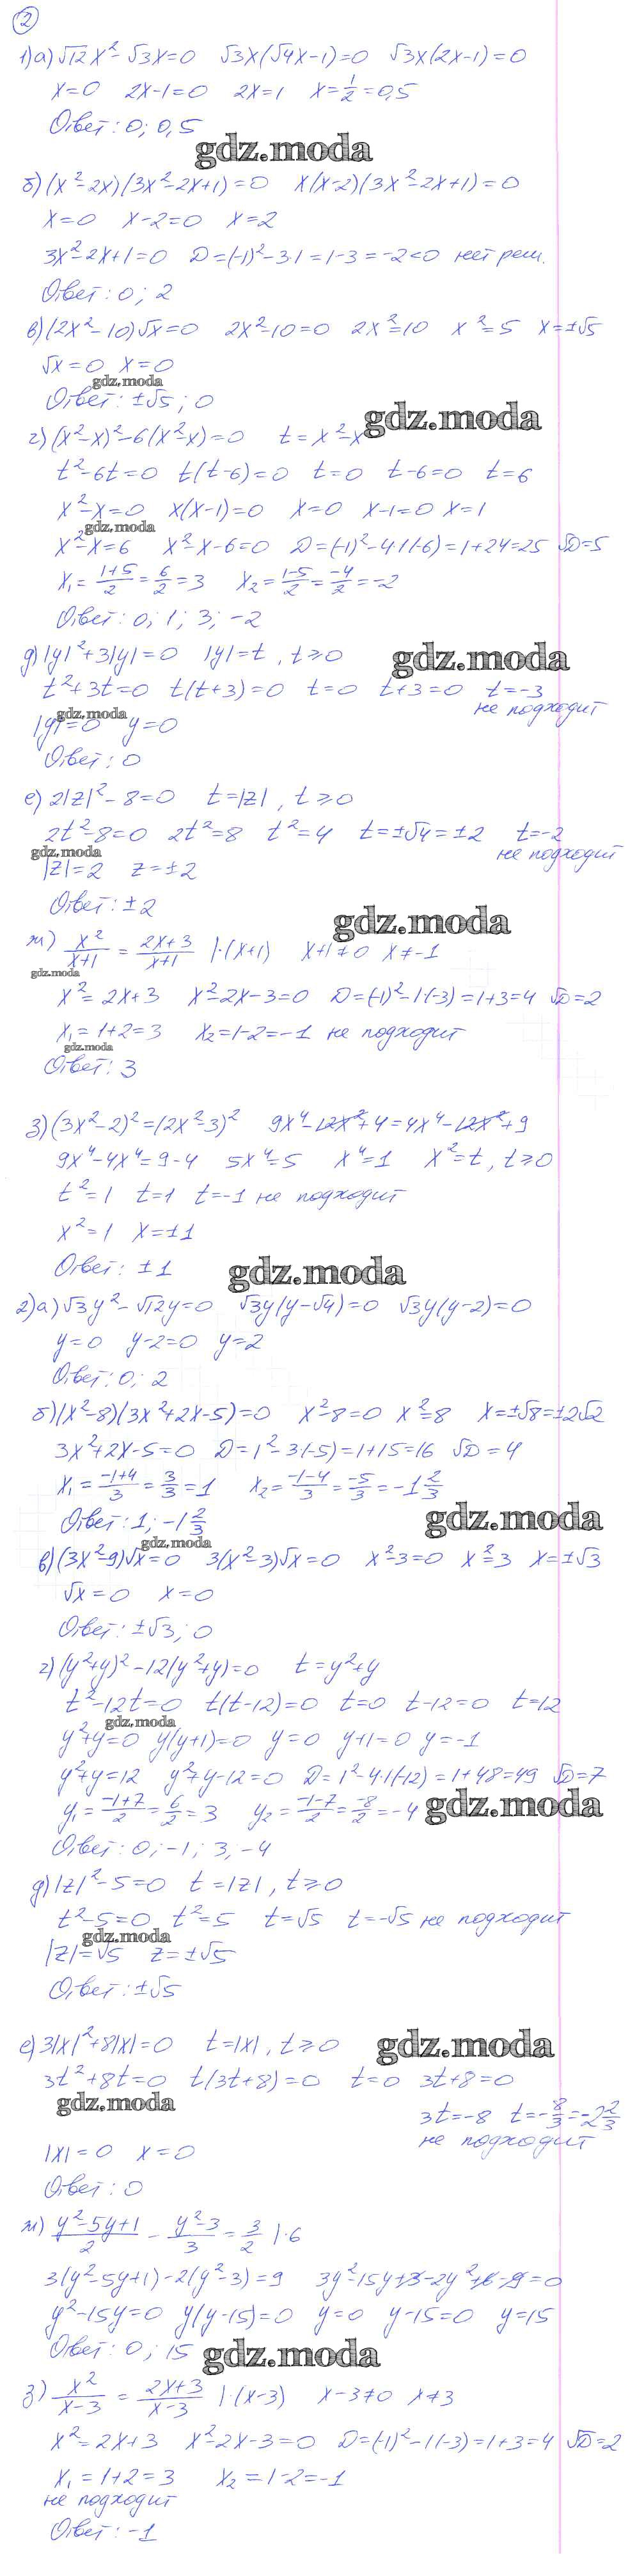 2
1) а) √12x² - √3x = 0   √3x(√4x - 1) = 0   √3x(2x - 1) = 0
x = 0   2x - 1 = 0   2x = 1   x = 1/2 = 0,5
Ответ: 0; 0,5
gdz.moda
б) (x² - 2x)(3x² - 2x + 1) = 0   x(x - 2)(3x² - 2x + 1) = 0
x = 0   x - 2 = 0   x = 2
3x² - 2x + 1 = 0   D = (-1)² - 3·1 = 1 - 3 = -2 < 0 нет реш.
Ответ: 0; 2
в) (2x² - 10)√x = 0   2x² - 10 = 0   2x² = 10   x² = 5   x = ±√5
√x = 0   x = 0
gdz.moda
Ответ: ±√5; 0
gdz.moda
г) (x² - x)² - 6(x² - x) = 0   t = x² - x
t² - 6t = 0   t(t - 6) = 0   t = 0   t - 6 = 0   t = 6
x² - x = 0   x(x - 1) = 0   x = 0   x - 1 = 0   x = 1
gdz.moda
x² - x = 6   x² - x - 6 = 0   D = (-1)² - 4·1·(-6) = 1 + 24 = 25   √D = 5
x₁ = (1+5)/2 = 6/2 = 3   x₂ = (1-5)/2 = -4/2 = -2
Ответ: 0; 1; 3; -2
д) |y|² + 3|y| = 0   |y| = t, t ≥ 0
gdz.moda
t² + 3t = 0   t(t + 3) = 0   t = 0   t + 3 = 0   t = -3
не подходит
gdz.moda
|y| = 0   y = 0
Ответ: 0
е) 2|z|² - 8 = 0   t = |z|, t ≥ 0
2t² - 8 = 0   2t² = 8   t² = 4   t = ±√4 = ±2   t = -2
gdz.moda
не подходит
|z| = 2   z = ±2
Ответ: ±2
gdz.moda
ж) x²/(x+1) = (2x+3)/(x+1)   |·(x+1)   x + 1 ≠ 0   x ≠ -1
gdz.moda
x² = 2x + 3   x² - 2x - 3 = 0   D = (-1)² - 1·(-3) = 1 + 3 = 4   √D = 2
x₁ = 1 + 2 = 3   x₂ = 1 - 2 = -1 не подходит
gdz.moda
Ответ: 3
з) (3x² - 2)² = (2x² - 3)²   9x⁴ - 12x² + 4 = 4x⁴ - 12x² + 9
9x⁴ - 4x⁴ = 9 - 4   5x⁴ = 5   x⁴ = 1   x² = t, t ≥ 0
t² = 1   t = 1   t = -1 не подходит
x² = 1   x = ±1
Ответ: ±1
gdz.moda
2) а) √3y² - √12y = 0   √3y(y - √4) = 0   √3y(y - 2) = 0
y = 0   y - 2 = 0   y = 2
Ответ: 0; 2
б) (x² - 8)(3x² + 2x - 5) = 0   x² - 8 = 0   x² = 8   x = ±√8 = ±2√2
3x² + 2x - 5 = 0   D = 1² - 3·(-5) = 1 + 15 = 16   √D = 4
x₁ = (-1+4)/3 = 3/3 = 1   x₂ = (-1-4)/3 = -5/3 = -1 2/3
Ответ: 1; -1 2/3
gdz.moda
gdz.moda
в) (3x² - 9)√x = 0   3(x² - 3)√x = 0   x² - 3 = 0   x² = 3   x = ±√3
√x = 0   x = 0
Ответ: ±√3; 0
г) (y² + y)² - 12(y² + y) = 0   t = y² + y
t² - 12t = 0   t(t - 12) = 0   t = 0   t - 12 = 0   t = 12
gdz.moda
y² + y = 0   y(y + 1) = 0   y = 0   y + 1 = 0   y = -1
y² + y = 12   y² + y - 12 = 0   D = 1² - 4·1·(-12) = 1 + 48 = 49   √D = 7
y₁ = (-1+7)/2 = 6/2 = 3   y₂ = (-1-7)/2 = -8/2 = -4
gdz.moda
Ответ: 0; -1; 3; -4
д) |z|² - 5 = 0   t = |z|, t ≥ 0
t² - 5 = 0   t² = 5   t = √5   t = -√5 не подходит
gdz.moda
|z| = √5   z = ±√5
Ответ: ±√5
е) 3|x|² + 8|x| = 0   t = |x|, t ≥ 0
gdz.moda
3t² + 8t = 0   t(3t + 8) = 0   t = 0   3t + 8 = 0
gdz.moda
3t = -8   t = -8/3 = -2 2/3
не подходит
|x| = 0   x = 0
Ответ: 0
ж) (y² - 5y + 1)/2 - (y² - 3)/3 = 3/2   |·6
3(y² - 5y + 1) - 2(y² - 3) = 9   3y² - 15y + 3 - 2y² + 6 - 9 = 0
y² - 15y = 0   y(y - 15) = 0   y = 0   y - 15 = 0   y = 15
Ответ: 0; 15
gdz.moda
з) x²/(x-3) = (2x+3)/(x-3)   |·(x-3)   x - 3 ≠ 0   x ≠ 3
x² = 2x + 3   x² - 2x - 3 = 0   D = (-1)² - 1·(-3) = 1 + 3 = 4   √D = 2
x₁ = 1 + 2 = 3   x₂ = 1 - 2 = -1
не подходит
Ответ: -1